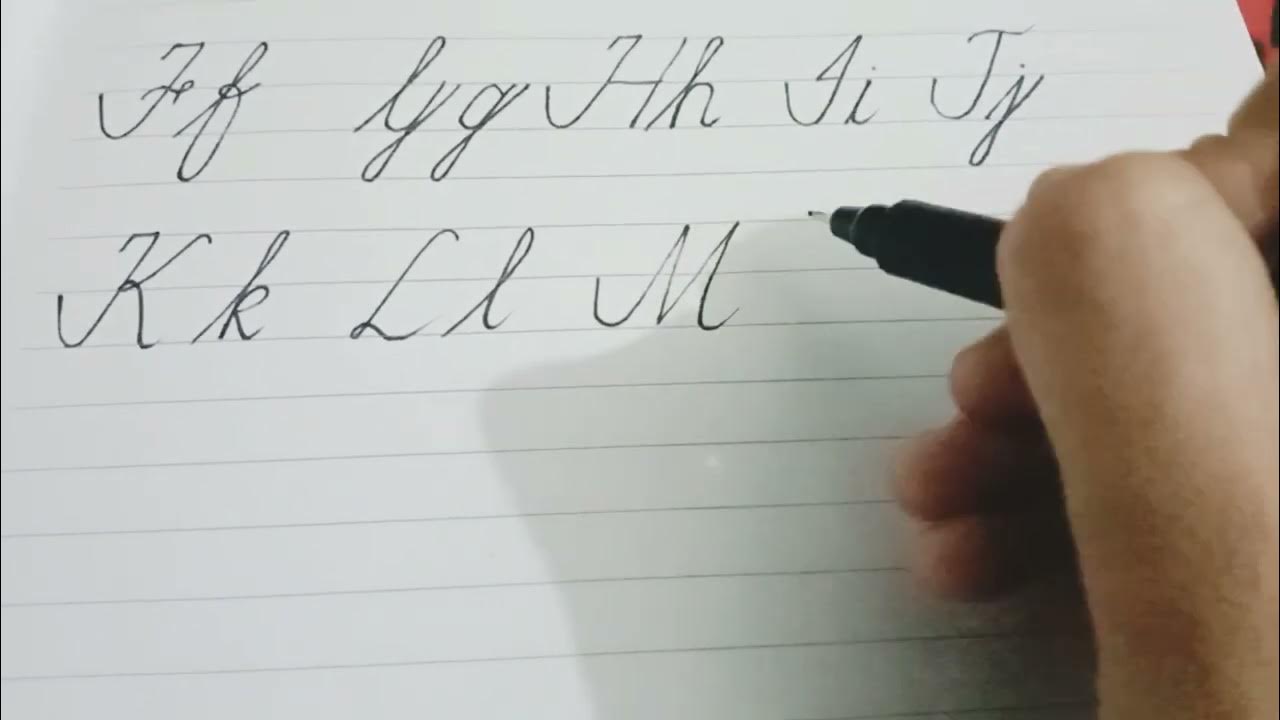 Ff Gg Hh Ii Jj
Kk Ll M